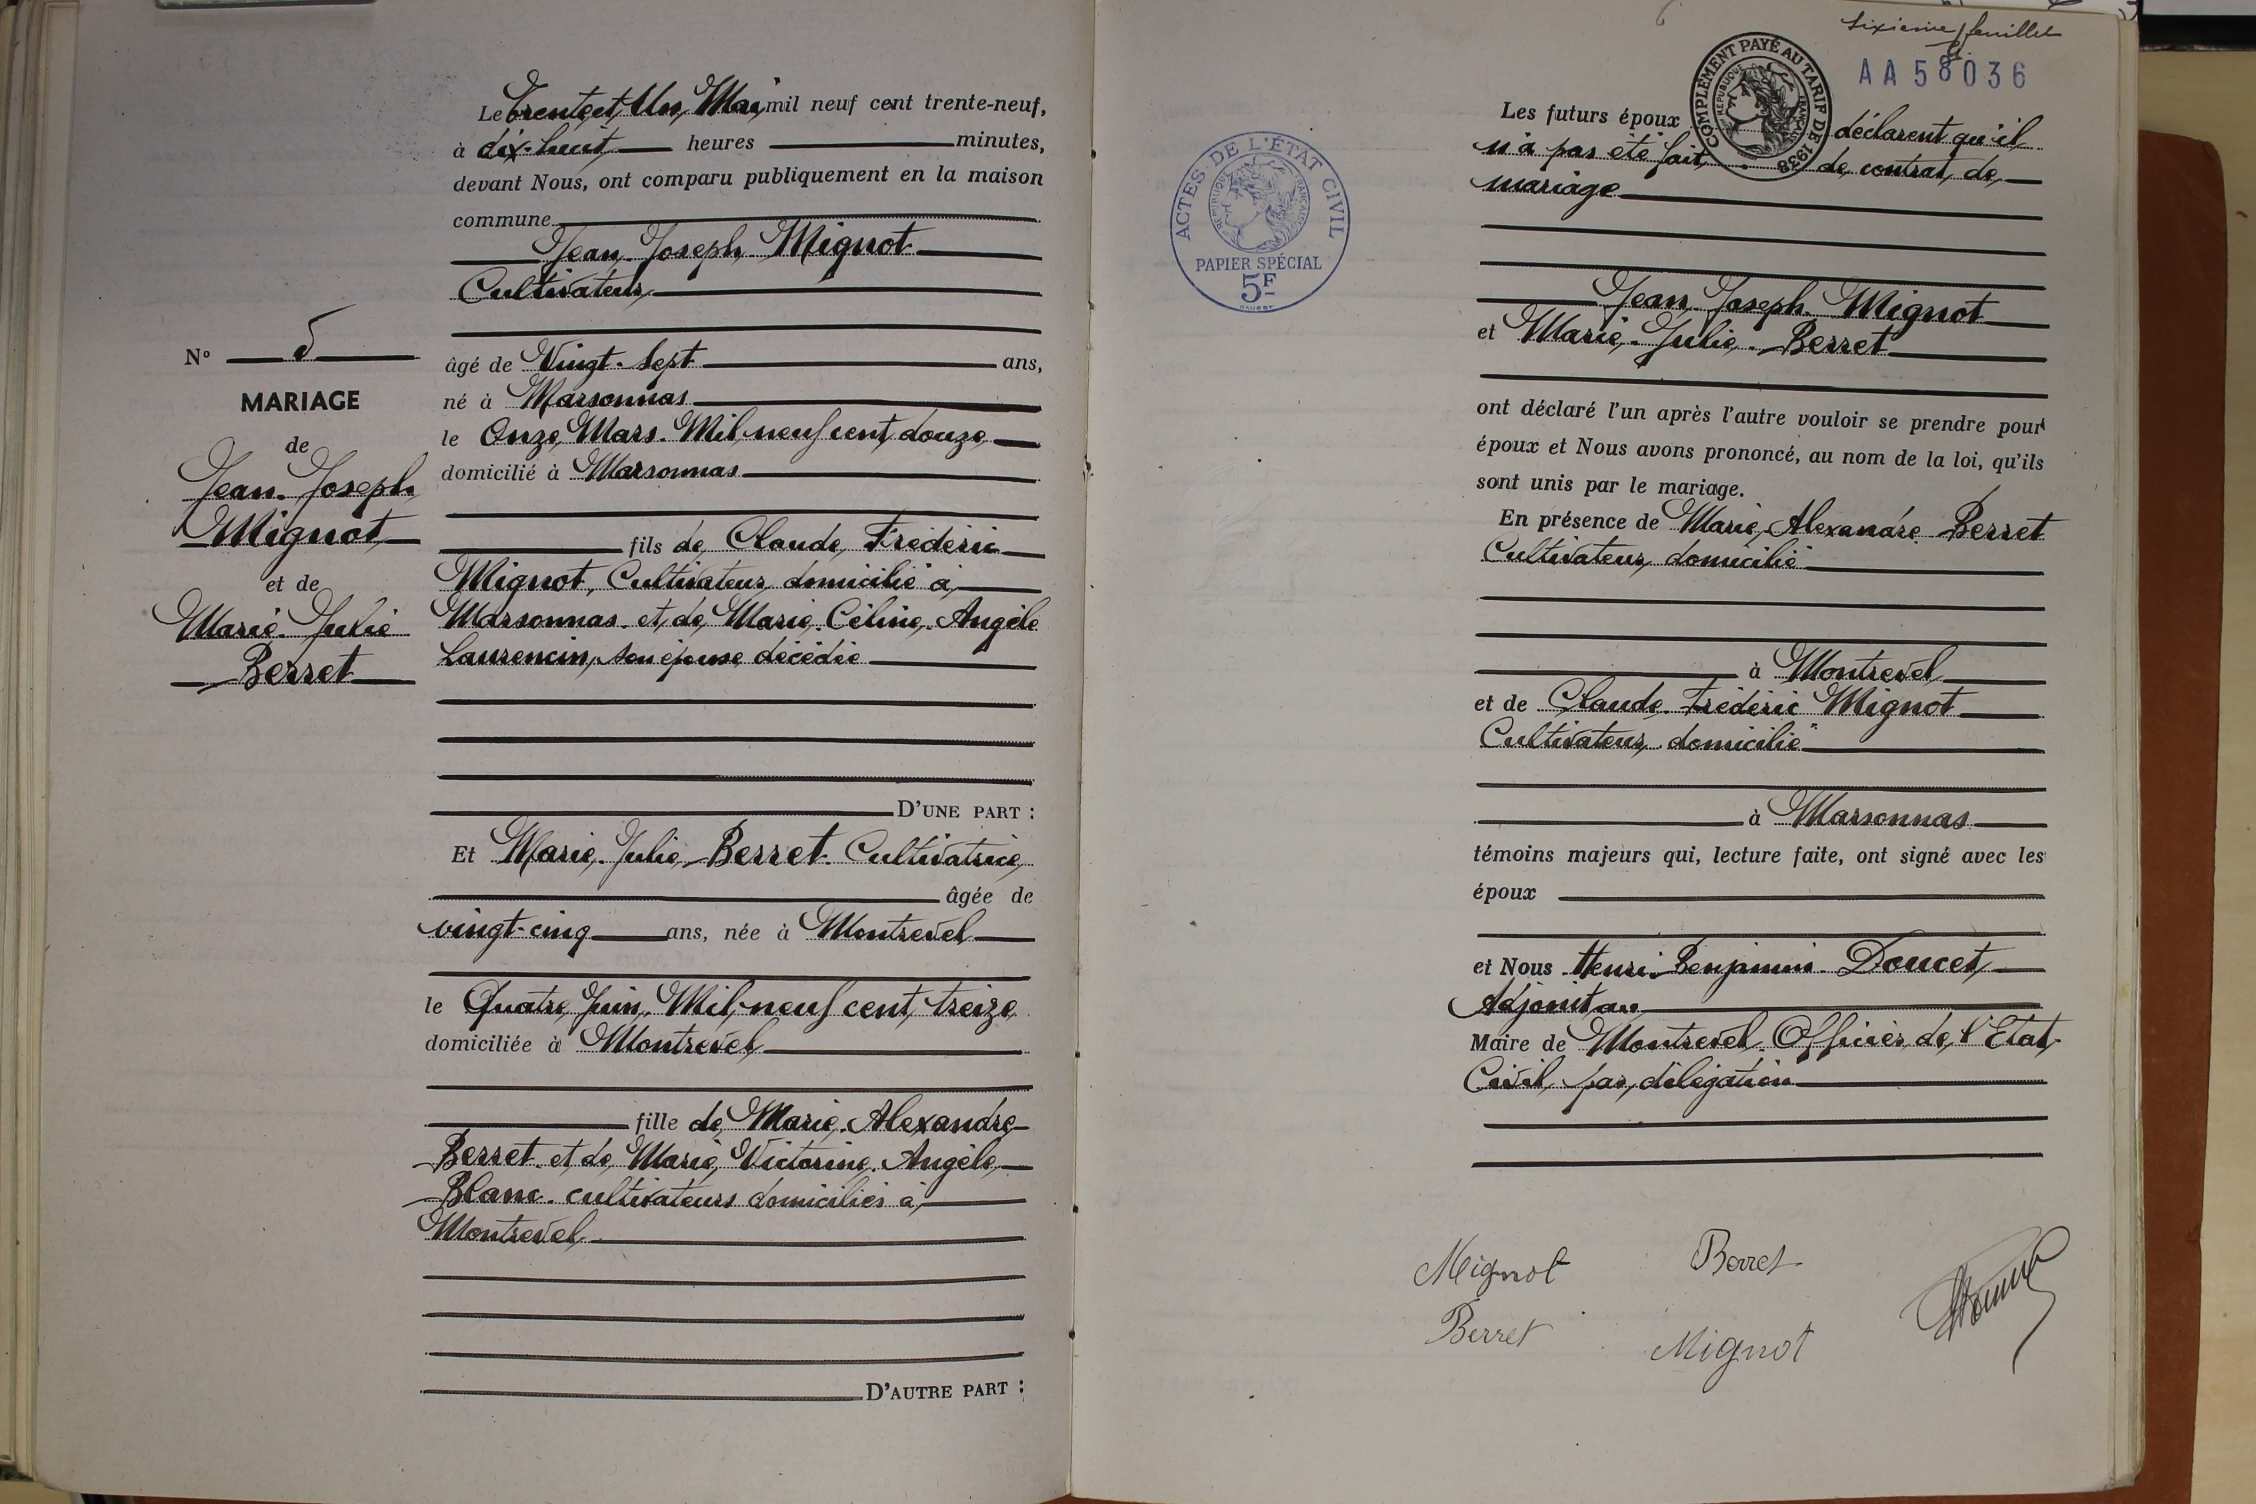 Le trente et Un Mai mil neuf cent trente-neuf,
à dix-huit heures minutes,
devant Nous, ont comparu publiquement en la maison
commune
Jean Joseph Mignot
Cultivateur
âgé de Vingt-Sept ans,
né à Marsonnas
le Onze Mars Mil neuf cent douze
domicilié à Marsonnas
fils de Claude Frédéric
Mignot, Cultivateur domicilié à
Marsonnas et de Marie Céline Angèle
Laurencin, son épouse décédée
D'UNE PART :
Et Marie Julie Berret Cultivatrice
âgée de
vingt-cinq ans, née à Montrevel
le Quatre Juin Mil neuf cent treize
domiciliée à Montrevel
fille de Marie Alexandre
Berret et de Marie Victorine Angèle
Blanc cultivateurs domiciliés à
Montrevel
D'AUTRE PART :
N° 5
MARIAGE
de
Jean Joseph
Mignot
et de
Marie Julie
Berret
sixième feuillet
AA58036
COMPLÉMENT PAYÉ AU TARIF DE 1938
RÉPUBLIQUE FRANÇAISE
ACTES DE L'ÉTAT CIVIL
RÉPUBLIQUE FRANÇAISE
PAPIER SPÉCIAL
5F
Les futurs époux déclarent qu'il
n'a pas été fait de contrat de
mariage
Jean Joseph Mignot
et Marie Julie Berret
ont déclaré l'un après l'autre vouloir se prendre pour
époux et Nous avons prononcé, au nom de la loi, qu'ils
sont unis par le mariage.
En présence de Marie Alexandre Berret
Cultivateur domicilié
à Montrevel
et de Claude Frédéric Mignot
Cultivateur domicilié
à Marsonnas
témoins majeurs qui, lecture faite, ont signé avec les
époux
et Nous Henri Benjamin Doucet,
Adjoint au
Maire de Montrevel Officier de l'Etat
Civil par délégation
Mignot Berret
Berret Mignot